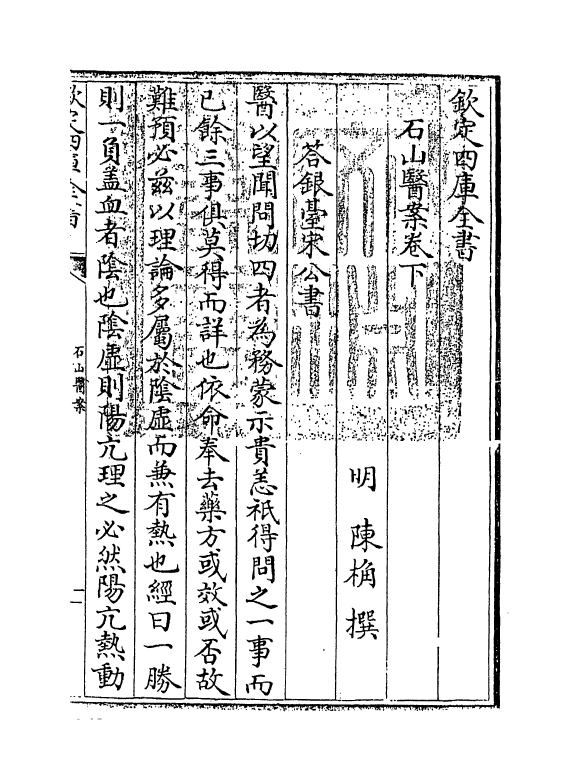 欽定四庫全書
石山醫案卷下
明 陳桷 撰
荅銀臺宋公書
醫以望聞問切四者為務蒙示貴恙祇得問之一事而
已餘三事俱莫得而詳也依命奉去藥方或效或否故
難預必兹以理論多屬於陰虛而兼有熱也經曰一勝
則一負盖血者陰也陰虛則陽亢理之必然陽亢熱動
欽定四庫全書
石山醫案